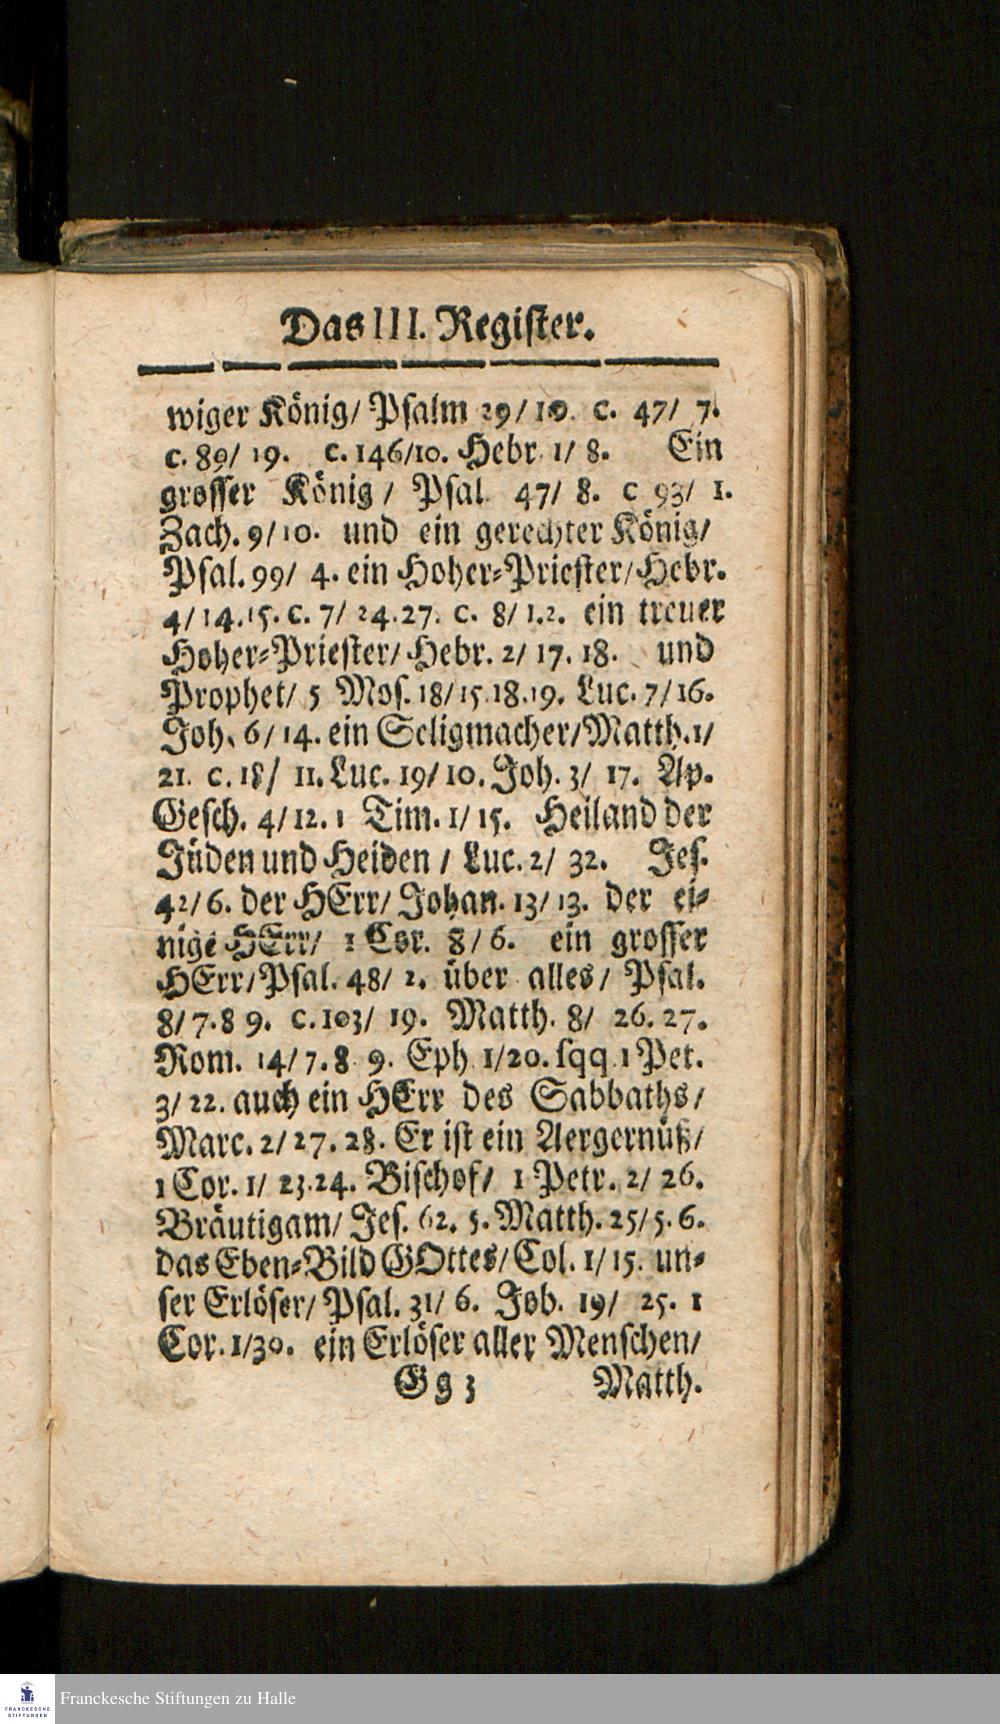 Das III. Register.
wiger König/ Psalm 29/10. c. 47/ 7.
c. 89/ 19. c. 146/10. Hebr. 1/ 8. Ein
grosser König / Psal. 47/ 8. c 93/ 1.
Zach. 9/10. und ein gerechter König/
Psal. 99/ 4. ein Hoher-Priester/Hebr.
4/14.15. c. 7/ 24.27. c. 8/ 1.2. ein treuer
Hoher-Priester/ Hebr. 2/ 17. 18. und
Prophet/ 5 Mos. 18/15.18.19. Luc. 7/16.
Joh. 6/14. ein Seligmacher/Matth. 1/
21. c. 18/ 11. Luc. 19/10. Joh. 3/ 17. Ap.
Gesch. 4/12. 1 Tim. 1/ 15. Heiland der
Jüden und Heiden / Luc. 2/ 32. Jes.
42/6. der HErr/ Johan. 13/ 13. der ei-
nige HErr/ 1 Cor. 8/ 6. ein grosser
HErr/Psal. 48/ 2. über alles/ Psal.
8/7.8 9. c. 103/ 19. Matth. 8/ 26. 27.
Rom. 14/7.8 9. Eph. 1/20. sqq. 1 Pet.
3/ 22. auch ein HErr des Sabbaths/
Marc. 2/27. 28. Er ist ein Aergernüß/
1 Cor. 1/ 23.24. Bischof/ 1 Petr. 2/ 26.
Bräutigam/ Jes. 62. 5. Matth. 25/5. 6.
das Eben-Bild GOttes/Col. 1/15. un-
ser Erlöser/ Psal. 31/ 6. Job. 19/ 25. 1
Cor. 1/30. ein Erlöser aller Menschen/
G g 3 Matth.
FRANCKESCHE
STIFTUNGEN
Franckesche Stiftungen zu Halle